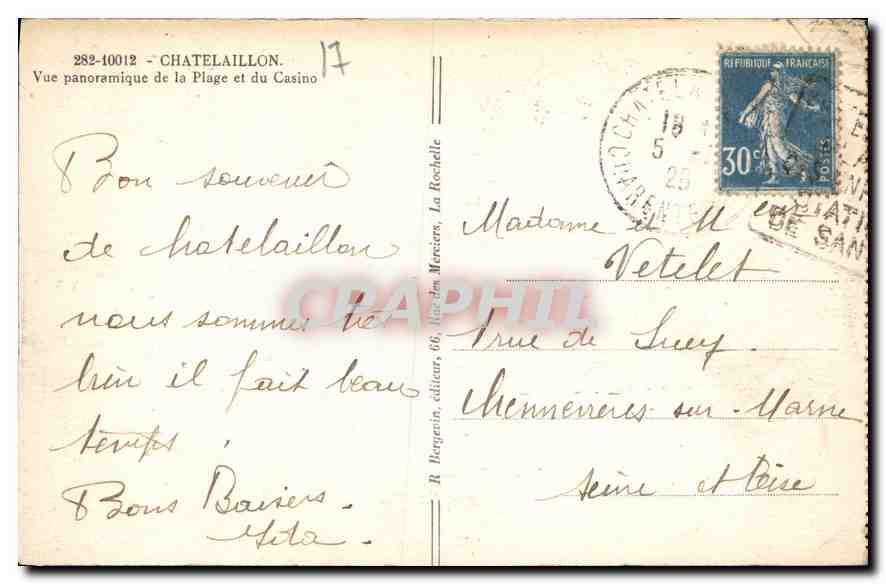 282-10012 - CHATELAILLON.
Vue panoramique de la Plage et du Casino
17
Bon souvenir
de Chatelaillon
nous sommes très
bien il fait beau
temps.
Bons Baisers
R Bergevin, éditeur, 66, Rue des Merciers, La Rochelle
REPUBLIQUE FRANÇAISE
30c
POSTES
CHATELA
18
5
25
CH ARENTE
DE SAN
Madame et M eur
Vetelet
rue de Sucy
Chennevières sur Marne
Seine et Oise
CPAPHIL